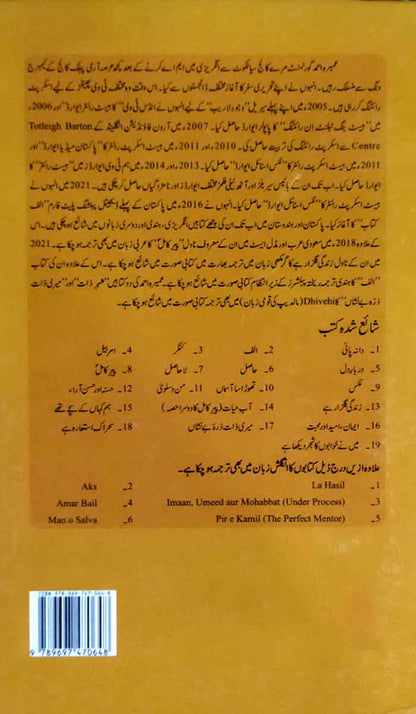 عمیرہ احمد گورنمنٹ مرے کالج سیالکوٹ سے انگریزی میں ایم اے کرنے کے بعد کچھ عرصہ آرمی پبلک کالج کے کیمبرج
ونگ سے منسلک رہیں۔ انہوں نے اپنے تحریری سفر کا آغاز مختلف ڈائجسٹوں سے کیا۔ اس وقت وہ مختلف ٹی وی چینلز کے لیے اسکرپٹ
رائٹنگ کر رہی ہیں۔ 2005ء میں اپنے پہلے سیریل "وجود لاریب" کے لیے انہوں نے انڈس ٹی وی کا "بیسٹ رائٹر ایوارڈ" اور 2006ء
میں "بیسٹ ینگ ٹیلنٹ اِن رائٹنگ" کا پاپولر ایوارڈ حاصل کیا۔ 2007ء میں آرون فاؤنڈیشن انگلینڈ کے Totleigh Barton
Centre سے اسکرپٹ رائٹنگ کی تربیت حاصل کی۔ 2010ء اور 2011ء میں بیسٹ اسکرپٹ رائٹر کا "پاکستان میڈیا ایوارڈ" اور
2011ء میں بیسٹ اسکرپٹ رائٹر کا "لکس اسٹائل ایوارڈ" حاصل کیا۔ 2013ء اور 2014ء میں ہم ٹی وی ایوارڈز میں "بیسٹ رائٹر" کا
ایوارڈ حاصل کیا۔ اب تک ان کے بائیس سیریلز اور آٹھ ٹیلی فلمز مختلف ایوارڈز اور نامزدگیاں حاصل کر چکی ہیں۔ 2021ء میں انہوں نے
بیسٹ اسکرپٹ رائٹر کا "لکس اسٹائل ایوارڈ" حاصل کیا۔ 2016ء میں انہوں نے پاکستان کے پہلے ڈیجیٹل پبلشنگ پلیٹ فارم "الف
کتاب" کا آغاز کیا۔ پاکستان اور ہندوستان میں اب تک ان کی چھے کتابیں انگریزی، ہندی اور دوسری زبانوں میں شائع ہو چکی ہیں۔ اس
کے علاوہ 2018ء میں سعودی عرب اور مڈل ایسٹ میں ان کے معروف ناول "پیر کامل" کا عربی زبان میں بھی ترجمہ ہو چکا ہے۔ 2021
میں ان کے ناول زندگی گلزار ہے کا گرمکھی زبان میں ترجمہ بھارت میں کتابی صورت میں شائع ہو چکا ہے۔ اس کے علاوہ ان کی کتاب
"الف" کا ہندی ترجمہ ریختہ پبلشرز کے زیر انتظام کتابی صورت میں شائع ہو چکا ہے۔ عمیرہ احمد کی دو کتابیں "معمر ذات" اور "میری ذات
ذرہ بے نشاں" کا Dhivehi (مالدیپ کی قومی زبان) میں بھی ترجمہ کتابی صورت میں شائع ہو چکا ہے۔
شائع شدہ کتب
1۔ دانہ پانی 2۔ الف 3۔ کنکر 4۔ امربیل
5۔ دربار دل 6۔ حاصل 7۔ لا حاصل 8۔ پیر کامل
9۔ عکس 10۔ تھوڑا سا آسماں 11۔ من و سلویٰ 12۔ حسنہ اور حسن آراء
13۔ زندگی گلزار ہے 14۔ آب حیات (پیر کامل کا دوسرا حصہ) 15۔ ہم کہاں کے سچے تھے
16۔ ایمان، امید اور محبت 17۔ میری ذات ذرۂ بے نشاں 18۔ سحر اک استعارہ ہے
19۔ میں نے خوابوں کا شجر دیکھا ہے
علاوہ ازیں درج ذیل کتابوں کا انگلش زبان میں بھی ترجمہ ہو چکا ہے۔
1۔ La Hasil 2۔ Aks
3۔ Imaan, Umeed aur Mohabbat (Under Process) 4۔ Amar Bail
5۔ Pir e Kamil (The Perfect Mentor) 6۔ Man o Salva
ISBN 978 969 747 064 8
9 789697 470648